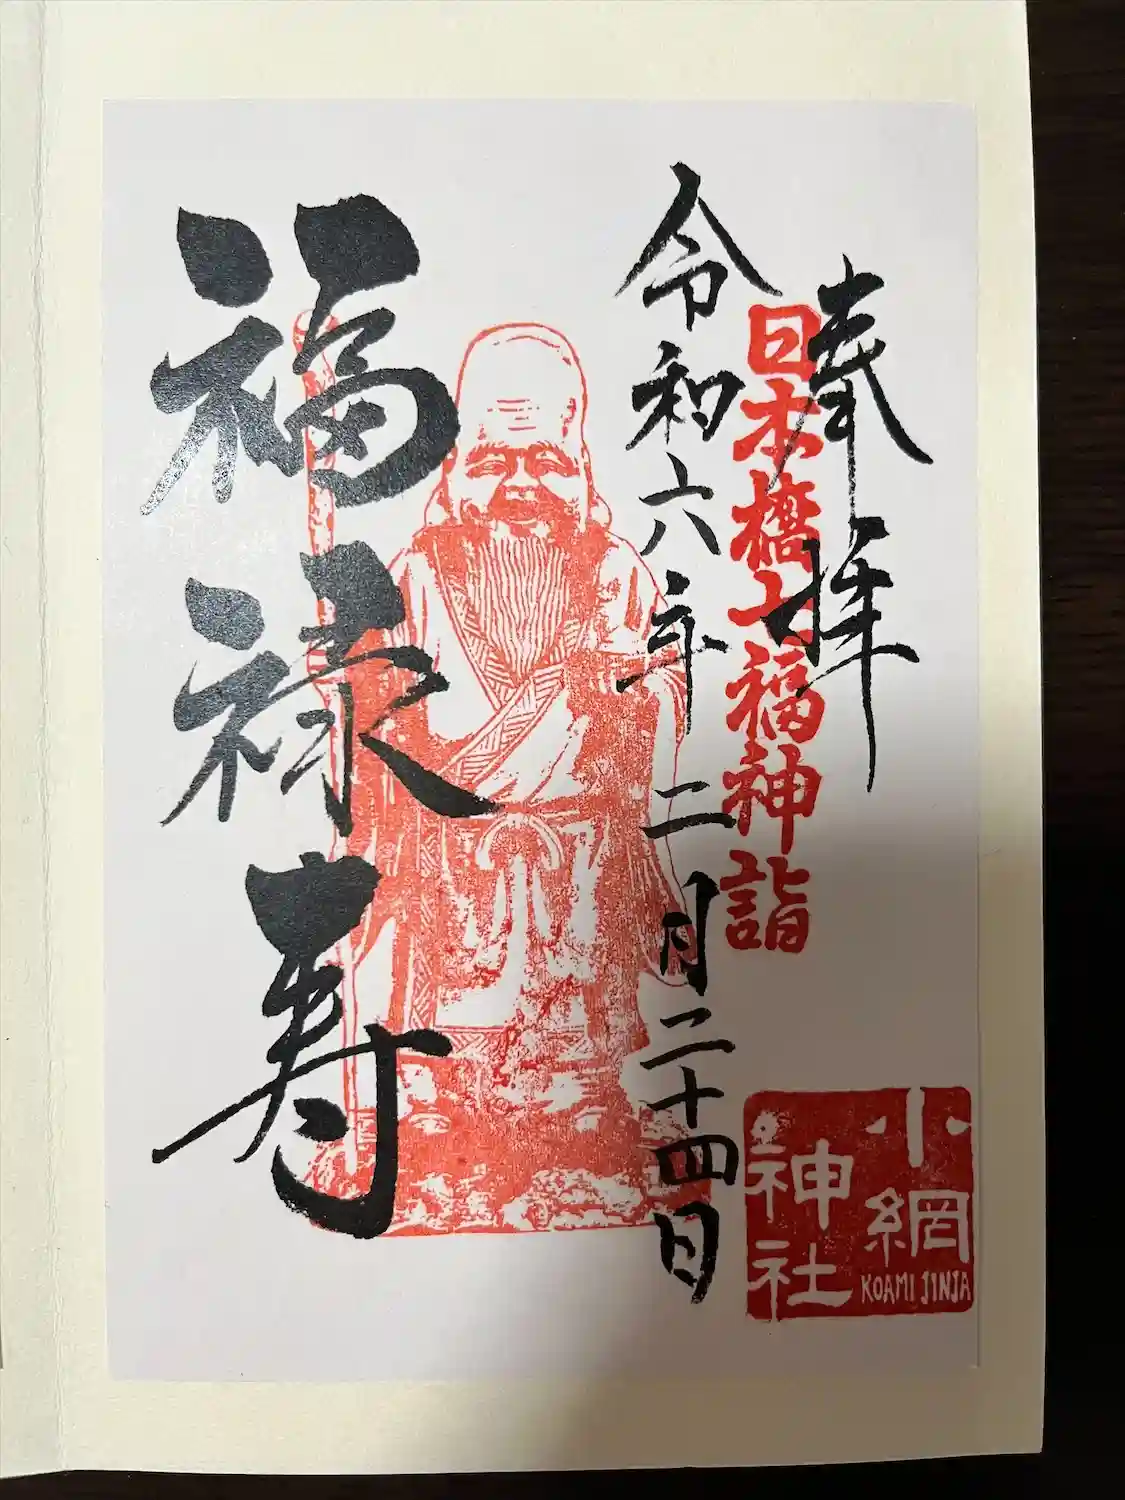 奉拝
日本橋七福神詣
令和六年二月二十四日
福禄寿
小網
神社
KOAMI JINJA